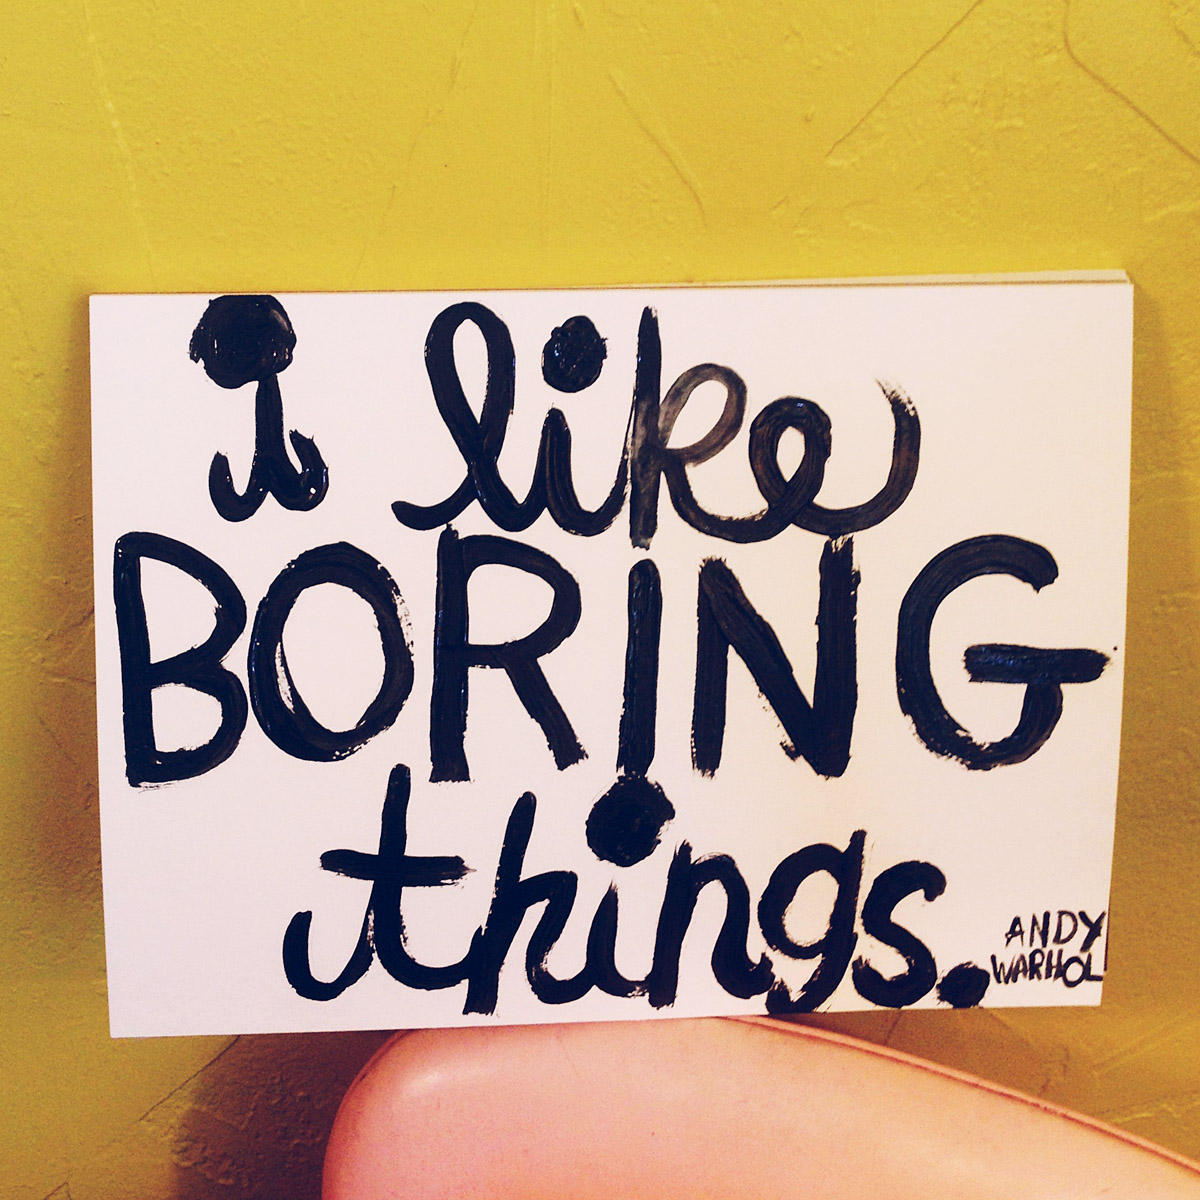 i like
BORING
things.
ANDY
WARHOL